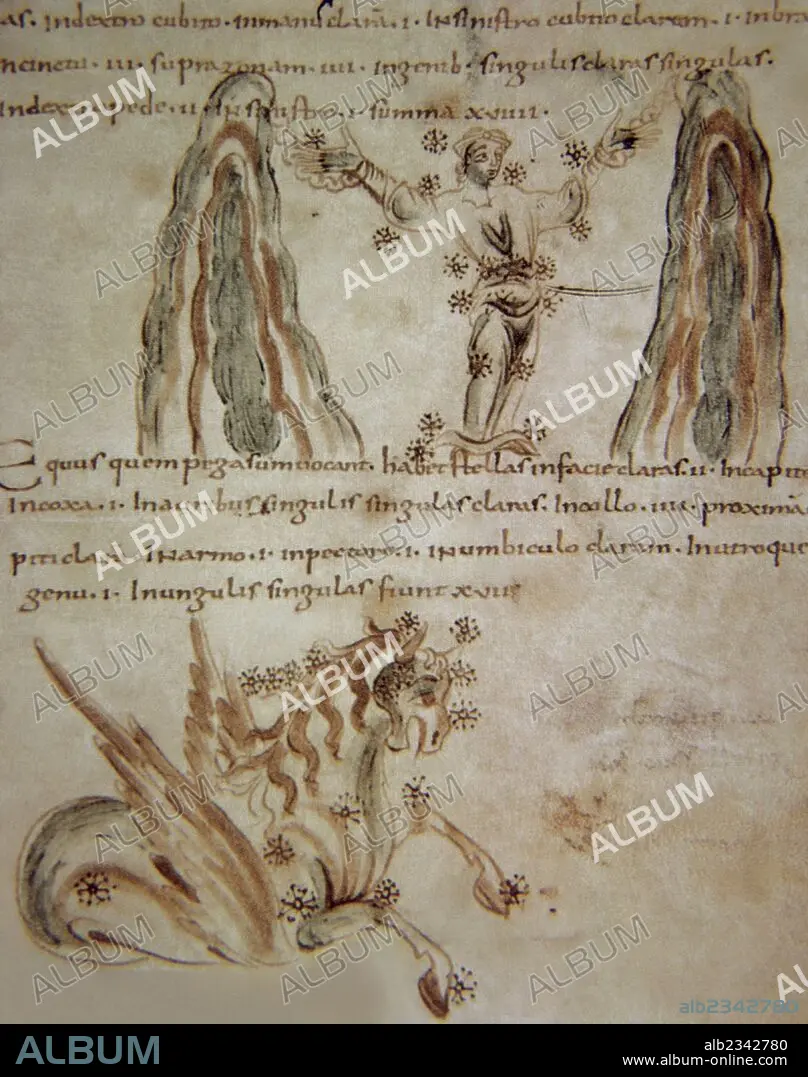 as. Indextro cubito. Inmanu clara. I. Insinistro cubito claram. I. Inbra
ncinctu. III. suprazonam. IIII. Ingenib. singulis claras singulas.
Indextro pede. II. Insinistro. I. summa XVIIII.
Equus quem pegasum vocant. habet stellas infacie claras. II. Incapite
Incoxa. I. Inauribus singulis singulas claras. Incollo. IIII. proxima
piti clara. Inarmo. I. inpectore. I. Inumbiculo claram. Inutroque
genu. I. Inungulis singulas fiunt XVII
ALBUM
alb2342780
ALBUM
alb2342780
www.album-online.com